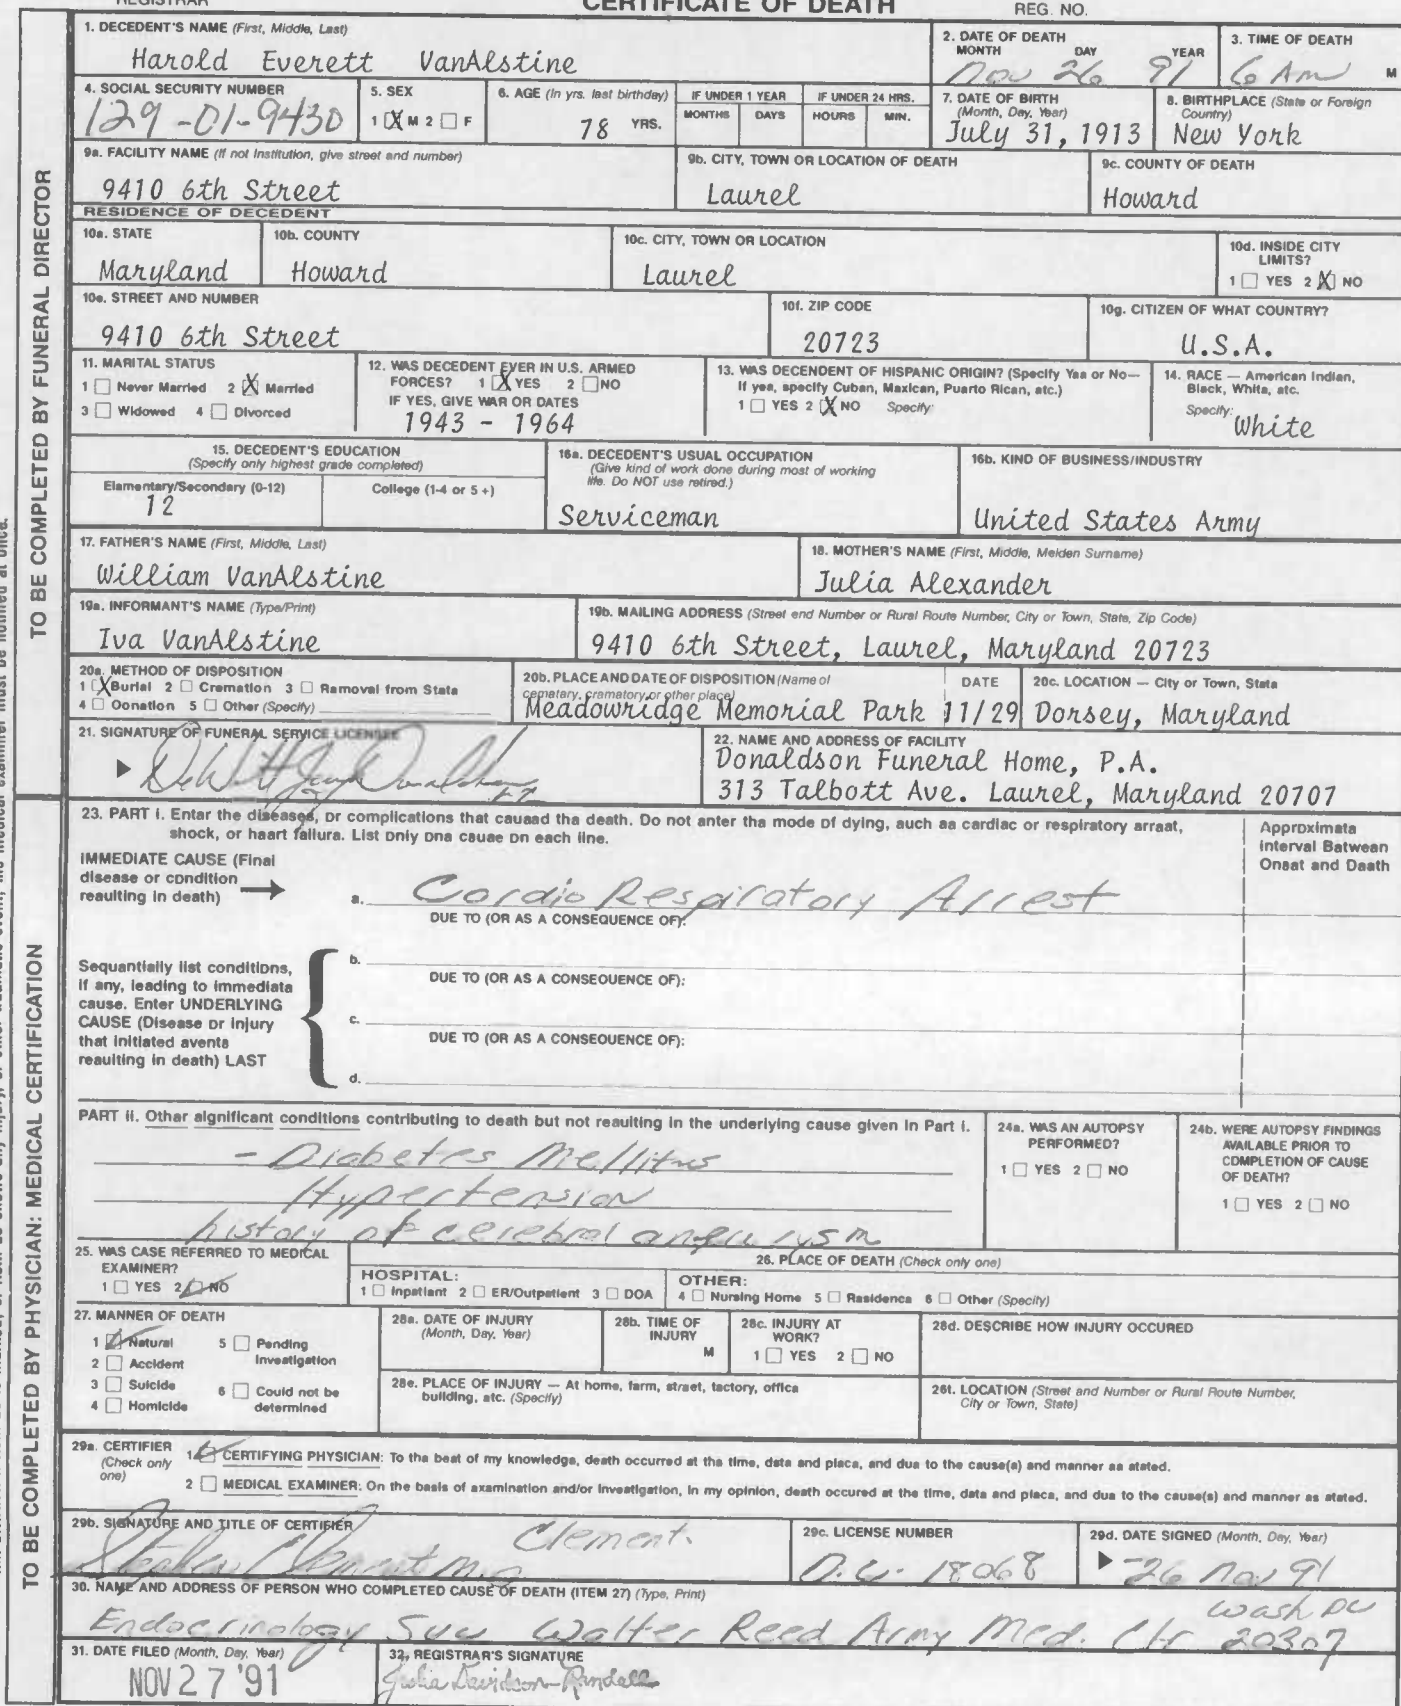 REGISTRAR
CERTIFICATE OF DEATH
REG. NO.
TO BE COMPLETED BY FUNERAL DIRECTOR
1. DECEDENT'S NAME (First, Middle, Last)
Harold Everett VanAlstine
2. DATE OF DEATH
MONTH DAY YEAR
Nov 26 91
3. TIME OF DEATH
6 Am M
4. SOCIAL SECURITY NUMBER
129-01-9430
5. SEX
1 X M 2 F
6. AGE (In yrs. last birthday)
78 YRS.
IF UNDER 1 YEAR
MONTHS DAYS
IF UNDER 24 HRS.
HOURS MIN.
7. DATE OF BIRTH
(Month, Day, Year)
July 31, 1913
8. BIRTHPLACE (State or Foreign
Country)
New York
9a. FACILITY NAME (If not Institution, give street and number)
9410 6th Street
9b. CITY, TOWN OR LOCATION OF DEATH
Laurel
9c. COUNTY OF DEATH
Howard
RESIDENCE OF DECEDENT
10a. STATE
Maryland
10b. COUNTY
Howard
10c. CITY, TOWN OR LOCATION
Laurel
10d. INSIDE CITY
LIMITS?
1 YES 2 X NO
10e. STREET AND NUMBER
9410 6th Street
10f. ZIP CODE
20723
10g. CITIZEN OF WHAT COUNTRY?
U.S.A.
11. MARITAL STATUS
1 Never Married 2 X Married
3 Widowed 4 Divorced
12. WAS DECEDENT EVER IN U.S. ARMED
FORCES? 1 X YES 2 NO
IF YES, GIVE WAR OR DATES
1943 - 1964
13. WAS DECENDENT OF HISPANIC ORIGIN? (Specify Yes or No—
If yes, specify Cuban, Maxican, Puarto Rican, atc.)
1 YES 2 X NO Specify:
14. RACE — American Indian,
Black, White, atc.
Specify:
White
15. DECEDENT'S EDUCATION
(Specify only highest grade completed)
Elamantary/Secondary (0-12)
12
College (1-4 or 5+)
16a. DECEDENT'S USUAL OCCUPATION
(Give kind of work done during most of working
life. Do NOT use retired.)
Serviceman
16b. KIND OF BUSINESS/INDUSTRY
United States Army
17. FATHER'S NAME (First, Middle, Last)
William VanAlstine
18. MOTHER'S NAME (First, Middle, Meiden Surname)
Julia Alexander
19a. INFORMANT'S NAME (Type/Print)
Iva VanAlstine
19b. MAILING ADDRESS (Street end Number or Rural Route Number, City or Town, State, Zip Code)
9410 6th Street, Laurel, Maryland 20723
20a. METHOD OF DISPOSITION
1 X Burial 2 Cramation 3 Ramoval from Stata
4 Oonation 5 Other (Specify)
20b. PLACE AND DATE OF DISPOSITION (Name of
cematary, cramatory or other place)
Meadowridge Memorial Park
DATE
11/29
20c. LOCATION — City or Town, Stata
Dorsey, Maryland
21. SIGNATURE OF FUNERAL SERVICE LICENSEE
22. NAME AND ADDRESS OF FACILITY
Donaldson Funeral Home, P.A.
313 Talbott Ave. Laurel, Maryland 20707
TO BE COMPLETED BY PHYSICIAN: MEDICAL CERTIFICATION
23. PART I. Enter the diseases, or complications that cauaad tha death. Do not anter tha moda of dying, auch aa cardiac or respiratory arraat,
shock, or haart failura. List only ona cauae on each line.
Approximata
Interval Batwean
Onaat and Daath
IMMEDIATE CAUSE (Final
disease or condition
resulting in death)
a. Cardio Respiratory Arrest
DUE TO (OR AS A CONSEQUENCE OF):
Sequantially list conditions,
if any, leading to immediata
cause. Enter UNDERLYING
CAUSE (Disease or injury
that initiated avents
reaulting in death) LAST
b.
DUE TO (OR AS A CONSEOUENCE OF):
c.
DUE TO (OR AS A CONSEOUENCE OF):
d.
PART II. Othar aignificant conditions contributing to death but not reaulting in the underlying cause given in Part I.
- Diabetes Mellitus
Hypertension
history of cerebral aneurysm
24a. WAS AN AUTOPSY
PERFORMED?
1 YES 2 NO
24b. WERE AUTOPSY FINDINGS
AVAILABLE PRIOR TO
COMPLETION OF CAUSE
OF DEATH?
1 YES 2 NO
25. WAS CASE REFERRED TO MEDICAL
EXAMINER?
1 YES 2 NO
26. PLACE OF DEATH (Check only one)
HOSPITAL:
1 Inpatiant 2 ER/Outpatient 3 DOA
OTHER:
4 Nursing Home 5 Rasidenca 6 Other (Specify)
27. MANNER OF DEATH
1 Natural 5 Pending
Investigation
2 Accident
3 Suicide 6 Could not be
determined
4 Homicide
28a. DATE OF INJURY
(Month, Day, Year)
28b. TIME OF
INJURY
M
28c. INJURY AT
WORK?
1 YES 2 NO
28d. DESCRIBE HOW INJURY OCCURED
28e. PLACE OF INJURY — At homa, farm, straet, factory, offica
building, atc. (Specify)
28f. LOCATION (Street and Number or Rural Route Number,
City or Town, State)
29a. CERTIFIER
(Check only
one)
1 CERTIFYING PHYSICIAN: To tha beat of my knowledga, death occurred at tha tima, data and placa, and dua to the cauae(a) and manner aa atated.
2 MEDICAL EXAMINER: On the basis of axamination and/or Invaatigation, in my opinion, death occured at the time, data and placa, and dua to the cause(s) and manner as atated.
29b. SIGNATURE AND TITLE OF CERTIFIER
Clement.
Stephen Clement M.D.
29c. LICENSE NUMBER
D.C. 18068
29d. DATE SIGNED (Month, Day, Year)
26 Nov 91
30. NAME AND ADDRESS OF PERSON WHO COMPLETED CAUSE OF DEATH (ITEM 27) (Type, Print)
Wash DC
Endocrinology Svc Walter Reed Army Med. Ctr 20307
31. DATE FILED (Month, Day, Year)
NOV 27 '91
32. REGISTRAR'S SIGNATURE
Julia Davidson-Randall